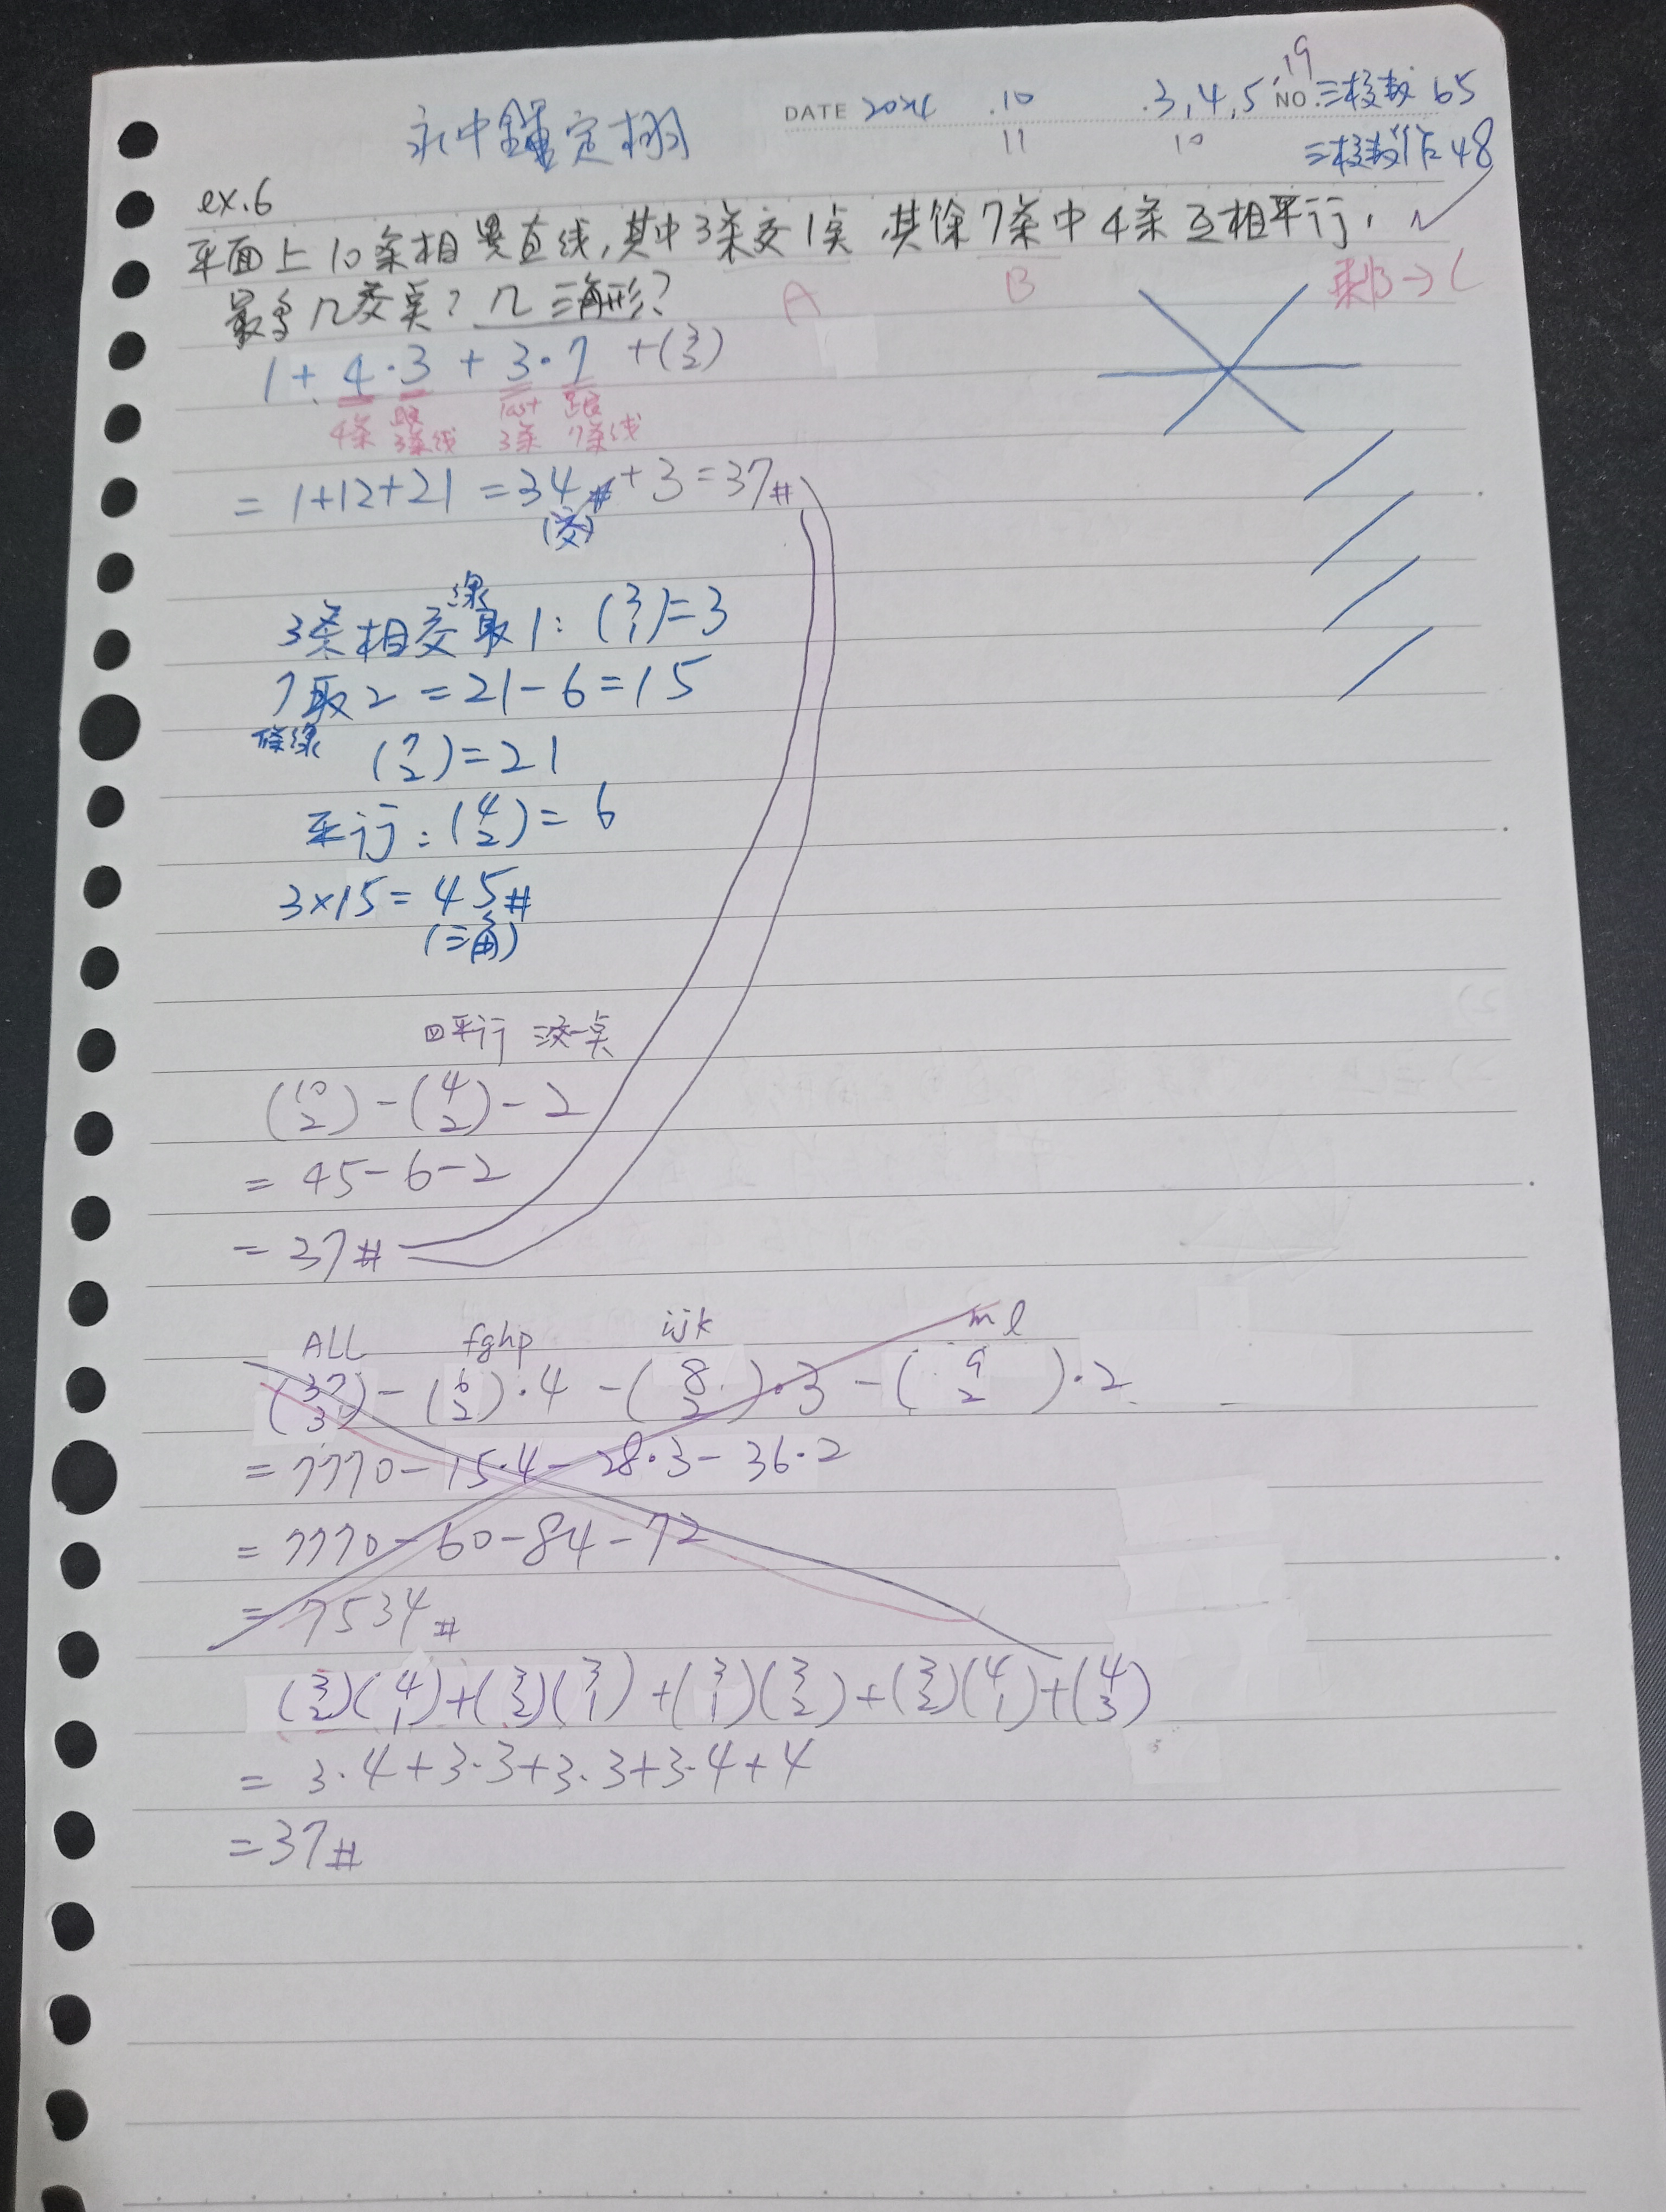 19
DATE 2024 .10 .3,4,5 NO. 三校数 65
11 10
三校数作 48
ex.6
平面上10条相異直线,其中3条交1点,其余7条中4条互相平行,
最多几交点? 几三角形?
A B 剩3→C
1 + 4·3 + 3·7 + (3 2)
4条 跟3条线 last 3条 跟7条线
= 1+12+21 = 34# + 3 = 37#
(交)
3条相交線取1: (3 1)=3
7取2 = 21-6 = 15
條線 (7 2) = 21
平行: (4 2) = 6
3×15 = 45#
(三角)
四平行 三交一点
(10 2) - (4 2) - 2
= 45-6-2
= 37#
ALL fghp ijk m l
(37 3) - (6 2)·4 - (8 2)·3 - (9 2)·2
= 7770 - 15·4 - 28·3 - 36·2
= 7770 - 60 - 84 - 72
= 7534#
(3 2)(4 1) + (3 2)(3 1) + (3 1)(3 2) + (3 2)(4 1) + (4 3)
= 3·4+3·3+3·3+3·4+4
= 37#